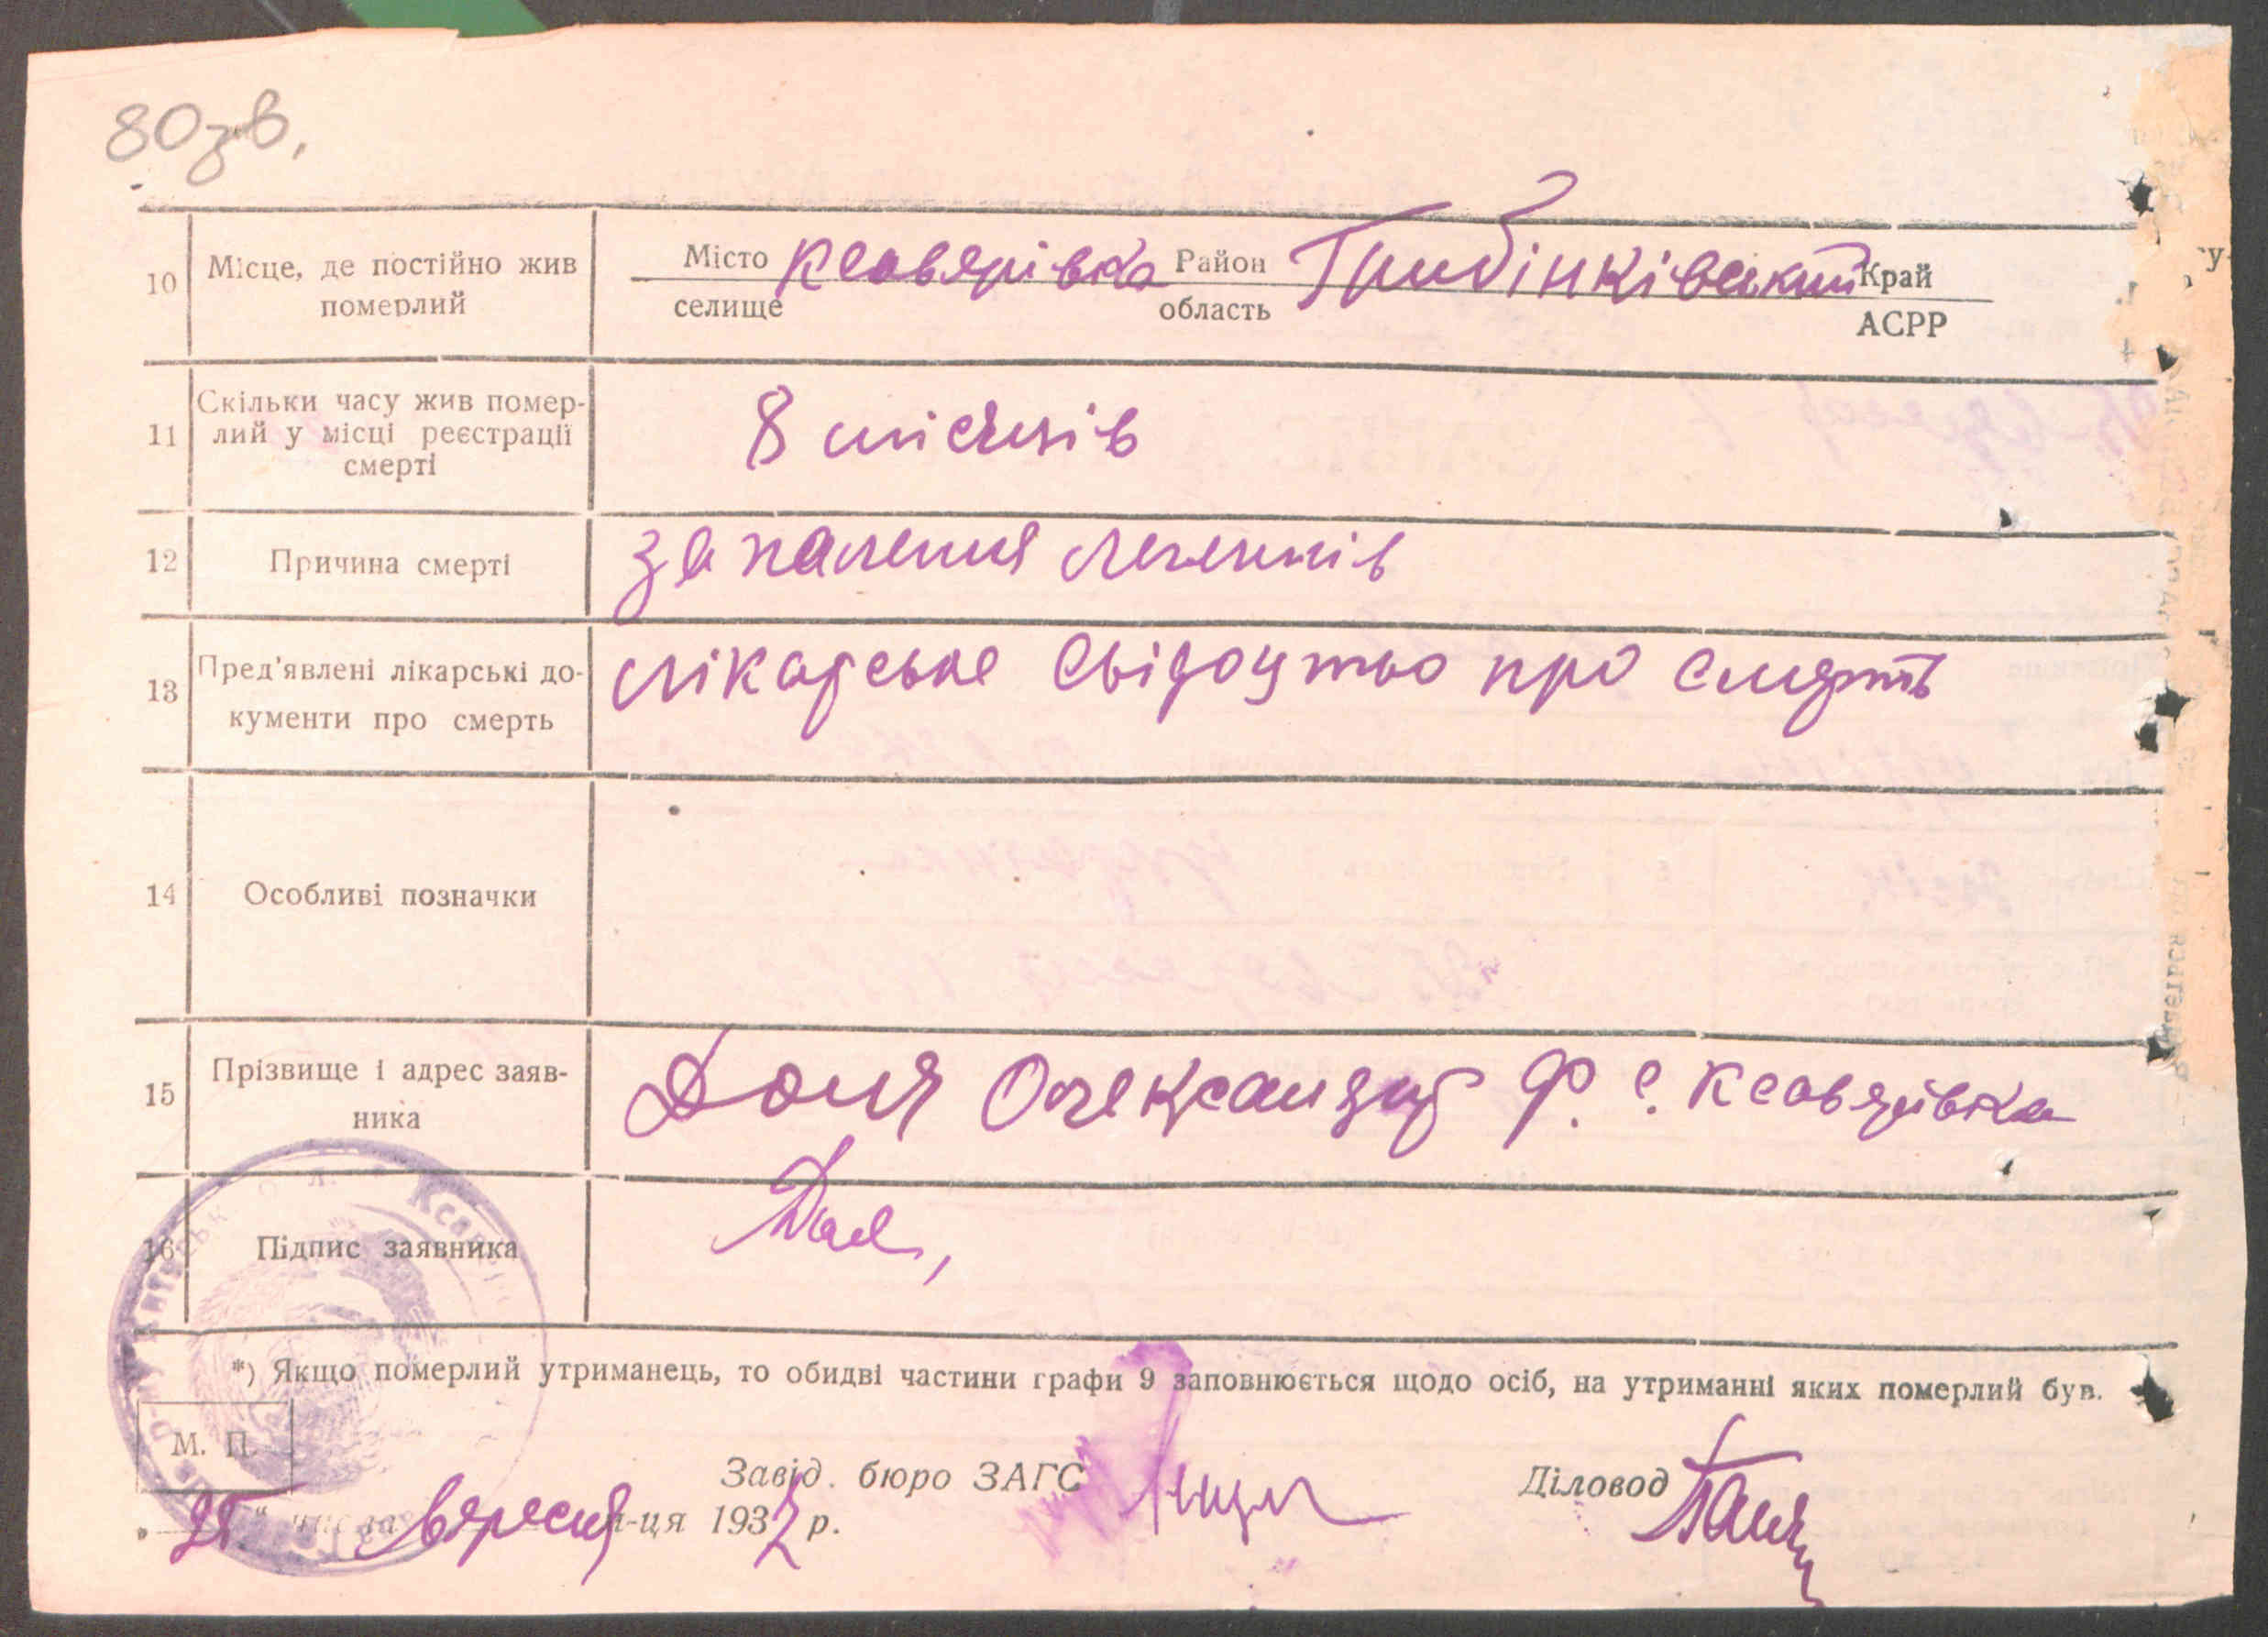 80 зв.
10 Місце, де постійно жив померлий
Місто селище Ксаверівка Район область Гребінківський Край АСРР
11 Скільки часу жив помер-
лий у місці реєстрації
смерті
8 місяців
12 Причина смерті запалення легенів
13 Пред'явлені лікарські до-
кументи про смерть
лікарське свідоцтво про смерть
14 Особливі позначки
15 Прізвище і адрес заяв-
ника
Доля Олександр Ф. с. Ксаверівка
16 Підпис заявника
Доля
*) Якщо померлий утриманець, то обидві частини графи 9 заповнюється щодо осіб, на утриманні яких померлий був.
М. П.
Завід. бюро ЗАГС
Діловод
„25“ числа вересня м-ця 193 р.